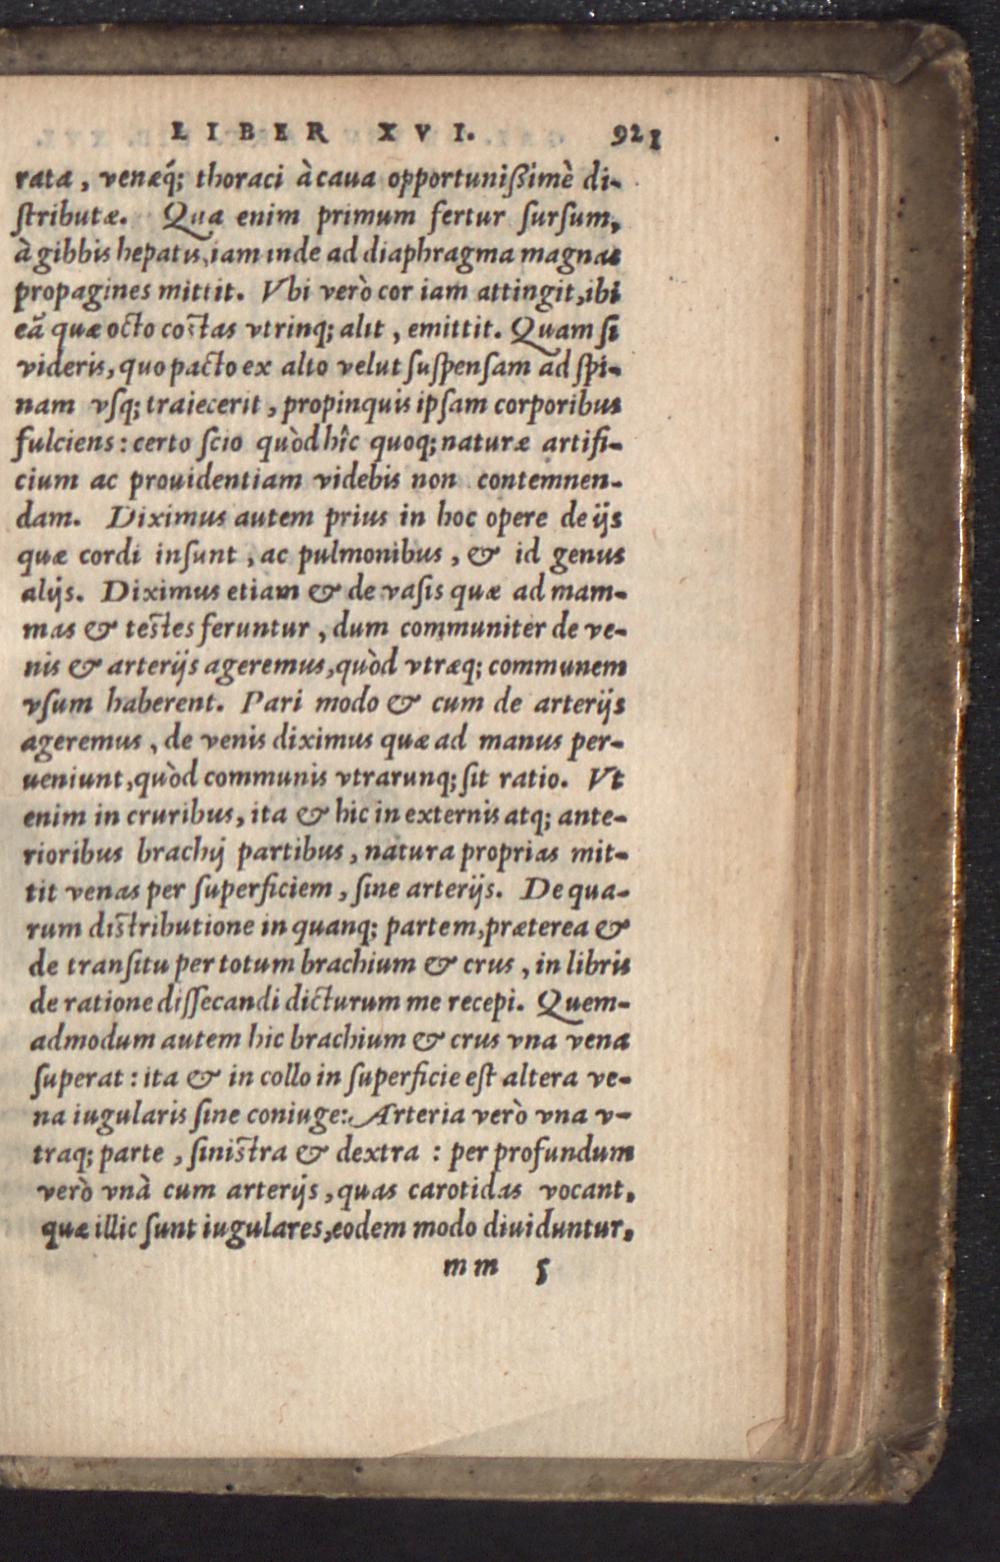 LIBER XVI. 921
rata, venæq́; thoraci à caua opportunißimè di-
ſtributæ. Qua enim primum fertur ſurſum,
à gibbis hepatis, iam inde ad diaphragma magnas
propagines mittit. Vbi verò cor iam attingit, ibi
eã quæ octo coſtas vtrinq; alit, emittit. Quam ſi
videris, quo pacto ex alto velut ſuſpenſam ad ſpi-
nam vſq; traiecerit, propinquis ipſam corporibus
fulciens: certo ſcio quòd hîc quoq; naturæ artifi-
cium ac prouidentiam videbis non contemnen-
dam. Diximus autem prius in hoc opere de ijs
quæ cordi inſunt, ac pulmonibus, & id genus
alijs. Diximus etiam & de vaſis quæ ad mam-
mas & teſtes feruntur, dum communiter de ve-
nis & arterijs ageremus, quòd vtræq; communem
vſum haberent. Pari modo & cum de arterijs
ageremus, de venis diximus quæ ad manus per-
ueniunt, quòd communis vtrarunq; ſit ratio. Vt
enim in cruribus, ita & hic in externis atq; ante-
rioribus brachij partibus, natura proprias mit-
tit venas per ſuperficiem, ſine arterijs. De qua-
rum diſtributione in quanq; partem, præterea &
de tranſitu per totum brachium & crus, in libris
de ratione diſſecandi dicturum me recepi. Quem-
admodum autem hic brachium & crus vna vena
ſuperat: ita & in collo in ſuperficie eſt altera ve-
na iugularis ſine coniuge: Arteria verò vna v-
traq; parte, ſiniſtra & dextra: per profundum
verò vnà cum arterijs, quas carotidas vocant,
quæ illic ſunt iugulares, eodem modo diuiduntur,
mm 5